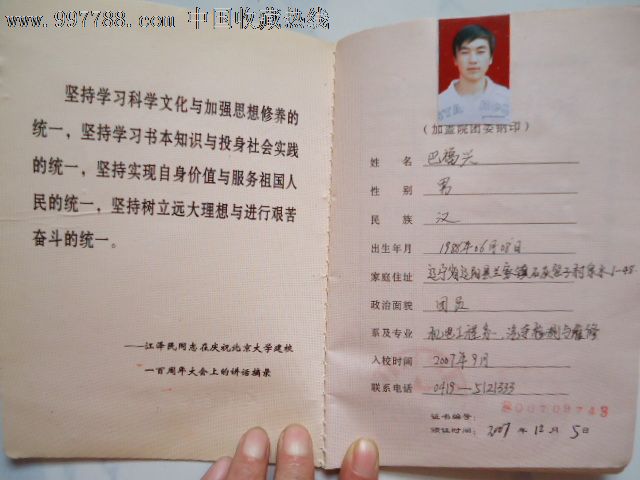 www.997788.com 中国收藏热线
坚持学习科学文化与加强思想修养的
统一，坚持学习书本知识与投身社会实践
的统一，坚持实现自身价值与服务祖国人
民的统一，坚持树立远大理想与进行艰苦
奋斗的统一。
——江泽民同志在庆祝北京大学建校
一百周年大会上的讲话摘录
(加盖院团委钢印)
姓名 巴福兴
性别 男
民族 汉
出生年月
家庭住址 辽宁省辽阳县兰家镇石灰窑子村
政治面貌 团员
系及专业 机电工程系、汽车检测与维修
入校时间 2007年9月
联系电话 0419—5121333
证书编号: 800709743
颁证时间: 2007年12月5日